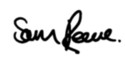 Sam Reeve.